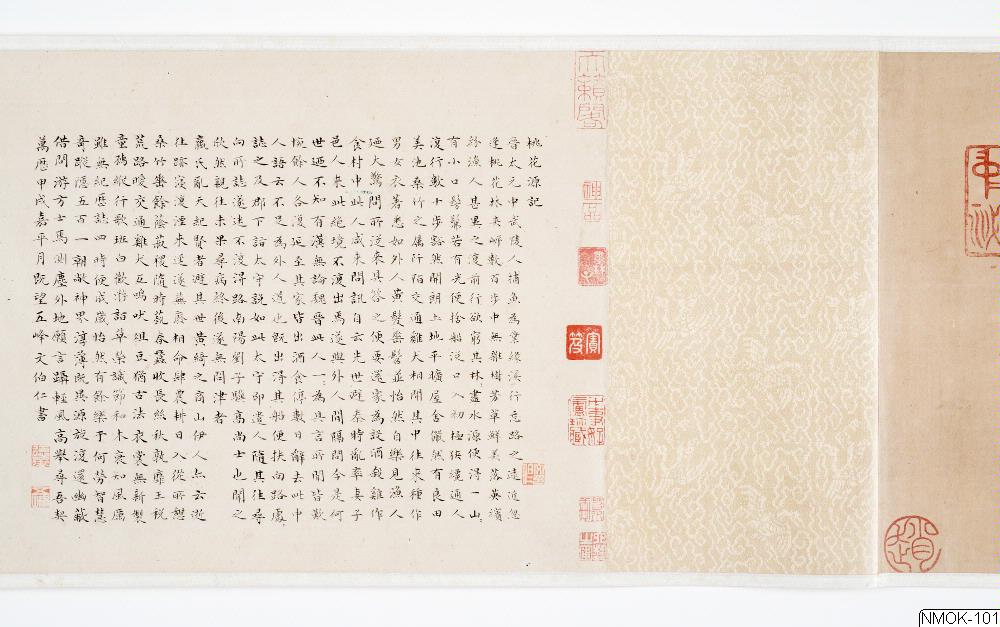 桃花源記
晉太元中武陵人捕魚為業緣溪行忘路之遠近忽
逢桃花林夾岸數百步中無雜樹芳草鮮美落英繽
紛漁人甚異之復前行欲窮其林〻盡水源便得一山〻
有小口髣髴若有光便捨船從口入初極狹纔通人
復行數十步豁然開朗土地平曠屋舍儼然有良田
美池桑竹之屬阡陌交通雞犬相聞其中往來種作
男女衣著悉如外人黃髮垂髫並怡然自樂見漁人
廼大驚問所從來具答之便要還家為設酒殺雞作
食村中此人咸來問訊自云先世避秦時亂率妻子
邑人來此絕境不復出焉遂與外人間隔問今是何
世廼不知有漢無論魏晉此人一〻為具言所聞皆歎
惋餘人各復延至其家皆出酒食停數日辭去此中
人語云不足為外人道也既出得其船便扶向路處〻
誌之及郡下詣太守說如此太守即遣人隨其往尋
向所誌遂迷不復得路南陽劉子驥高尚士也聞之
欣然親往未果尋病終後遂無問津者
嬴氏亂天紀賢者避其世黃綺之商山伊人亦云逝
往跡寖復湮來逕遂蕪廢相命肆農耕日入從所憩
桑竹垂餘蔭菽稷隨時藝春蠶收長絲秋熟靡王稅
荒路曖交通雞犬互鳴吠俎豆猶古法衣裳無新製
童孺縱行歌班白歡游詣草榮識節和木衰知風厲
雖無紀曆誌四時便成歲怡然有餘樂于何勞智慧
奇蹤隱五百一朝敞神界淳薄既異源旋復還幽蔽
借問游方士焉測塵外地願言躡輕風高舉尋吾契
萬曆甲戌嘉平月既望五峰文伯仁書
天籟閣
神品
趙
NMOK-101